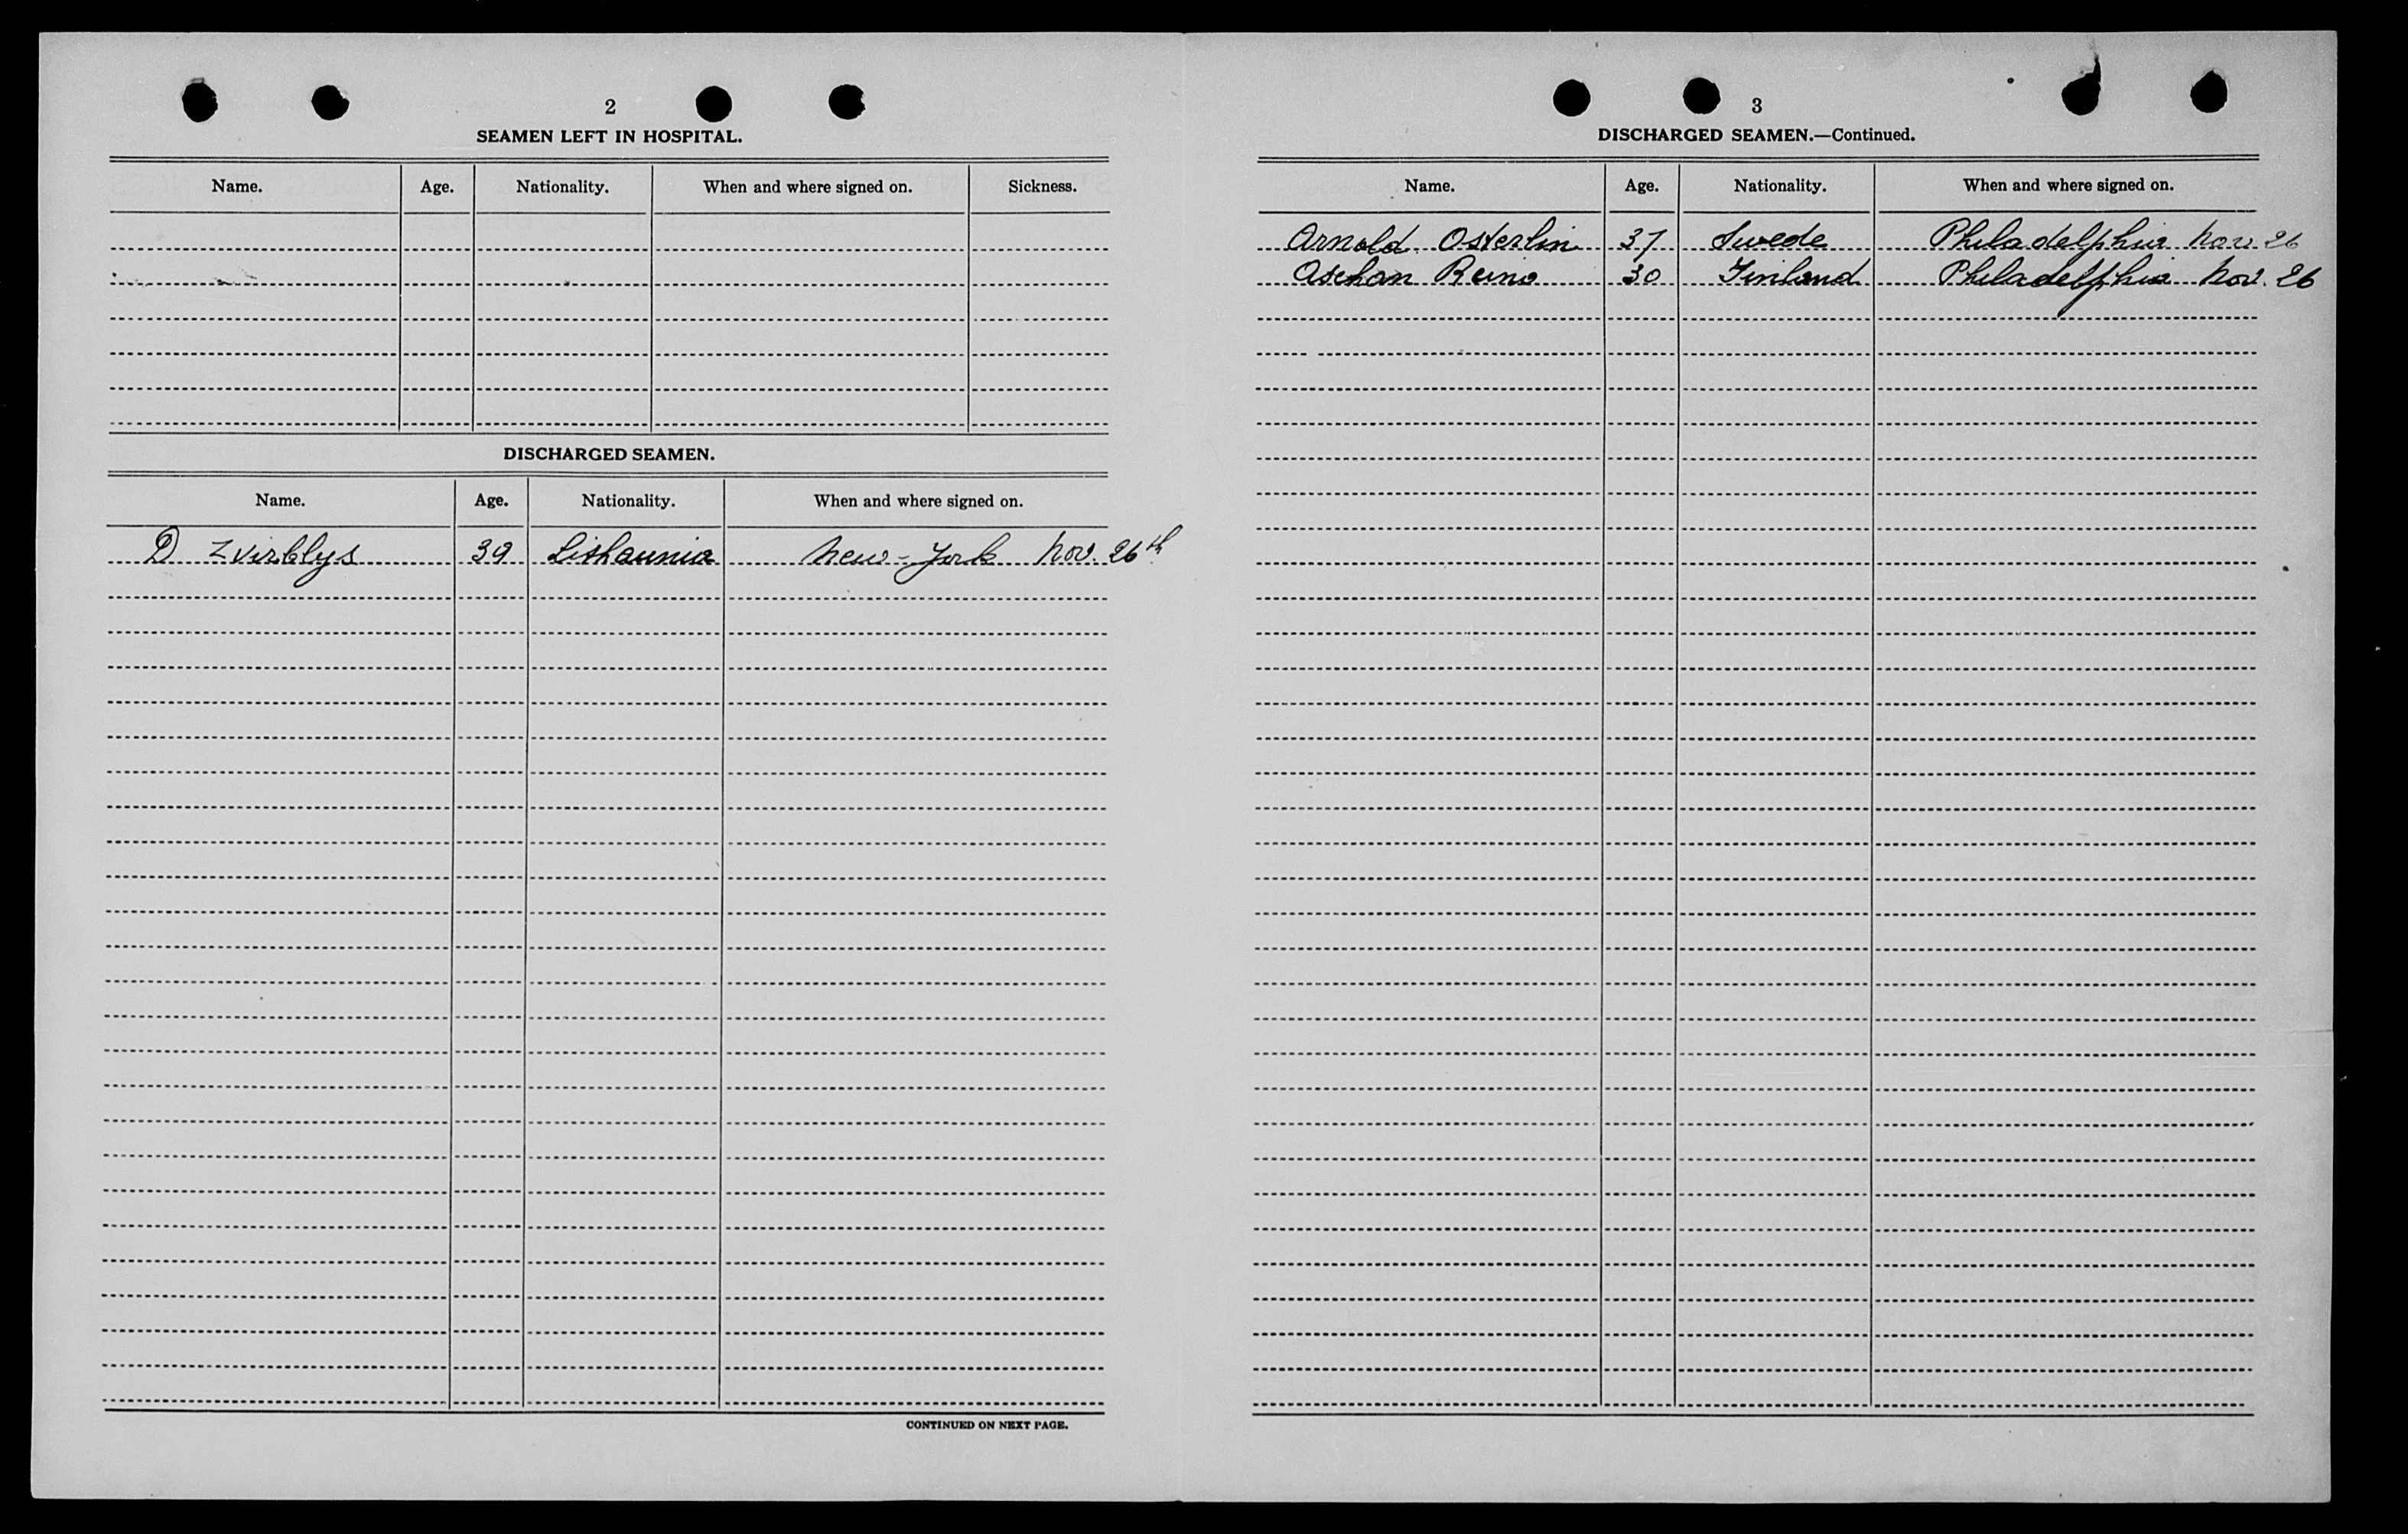 2
SEAMEN LEFT IN HOSPITAL.
Name. Age. Nationality. When and where signed on. Sickness.
DISCHARGED SEAMEN.
Name. Age. Nationality. When and where signed on.
D Zvirblys 39 Lithaunia New-York Nov. 26th
CONTINUED ON NEXT PAGE.
3
DISCHARGED SEAMEN.—Continued.
Name. Age. Nationality. When and where signed on.
Arnold Osterlin 37 Swede Philadelphia Nov. 26
Aschan Reino 30 Finland Philadelphia Nov. 26